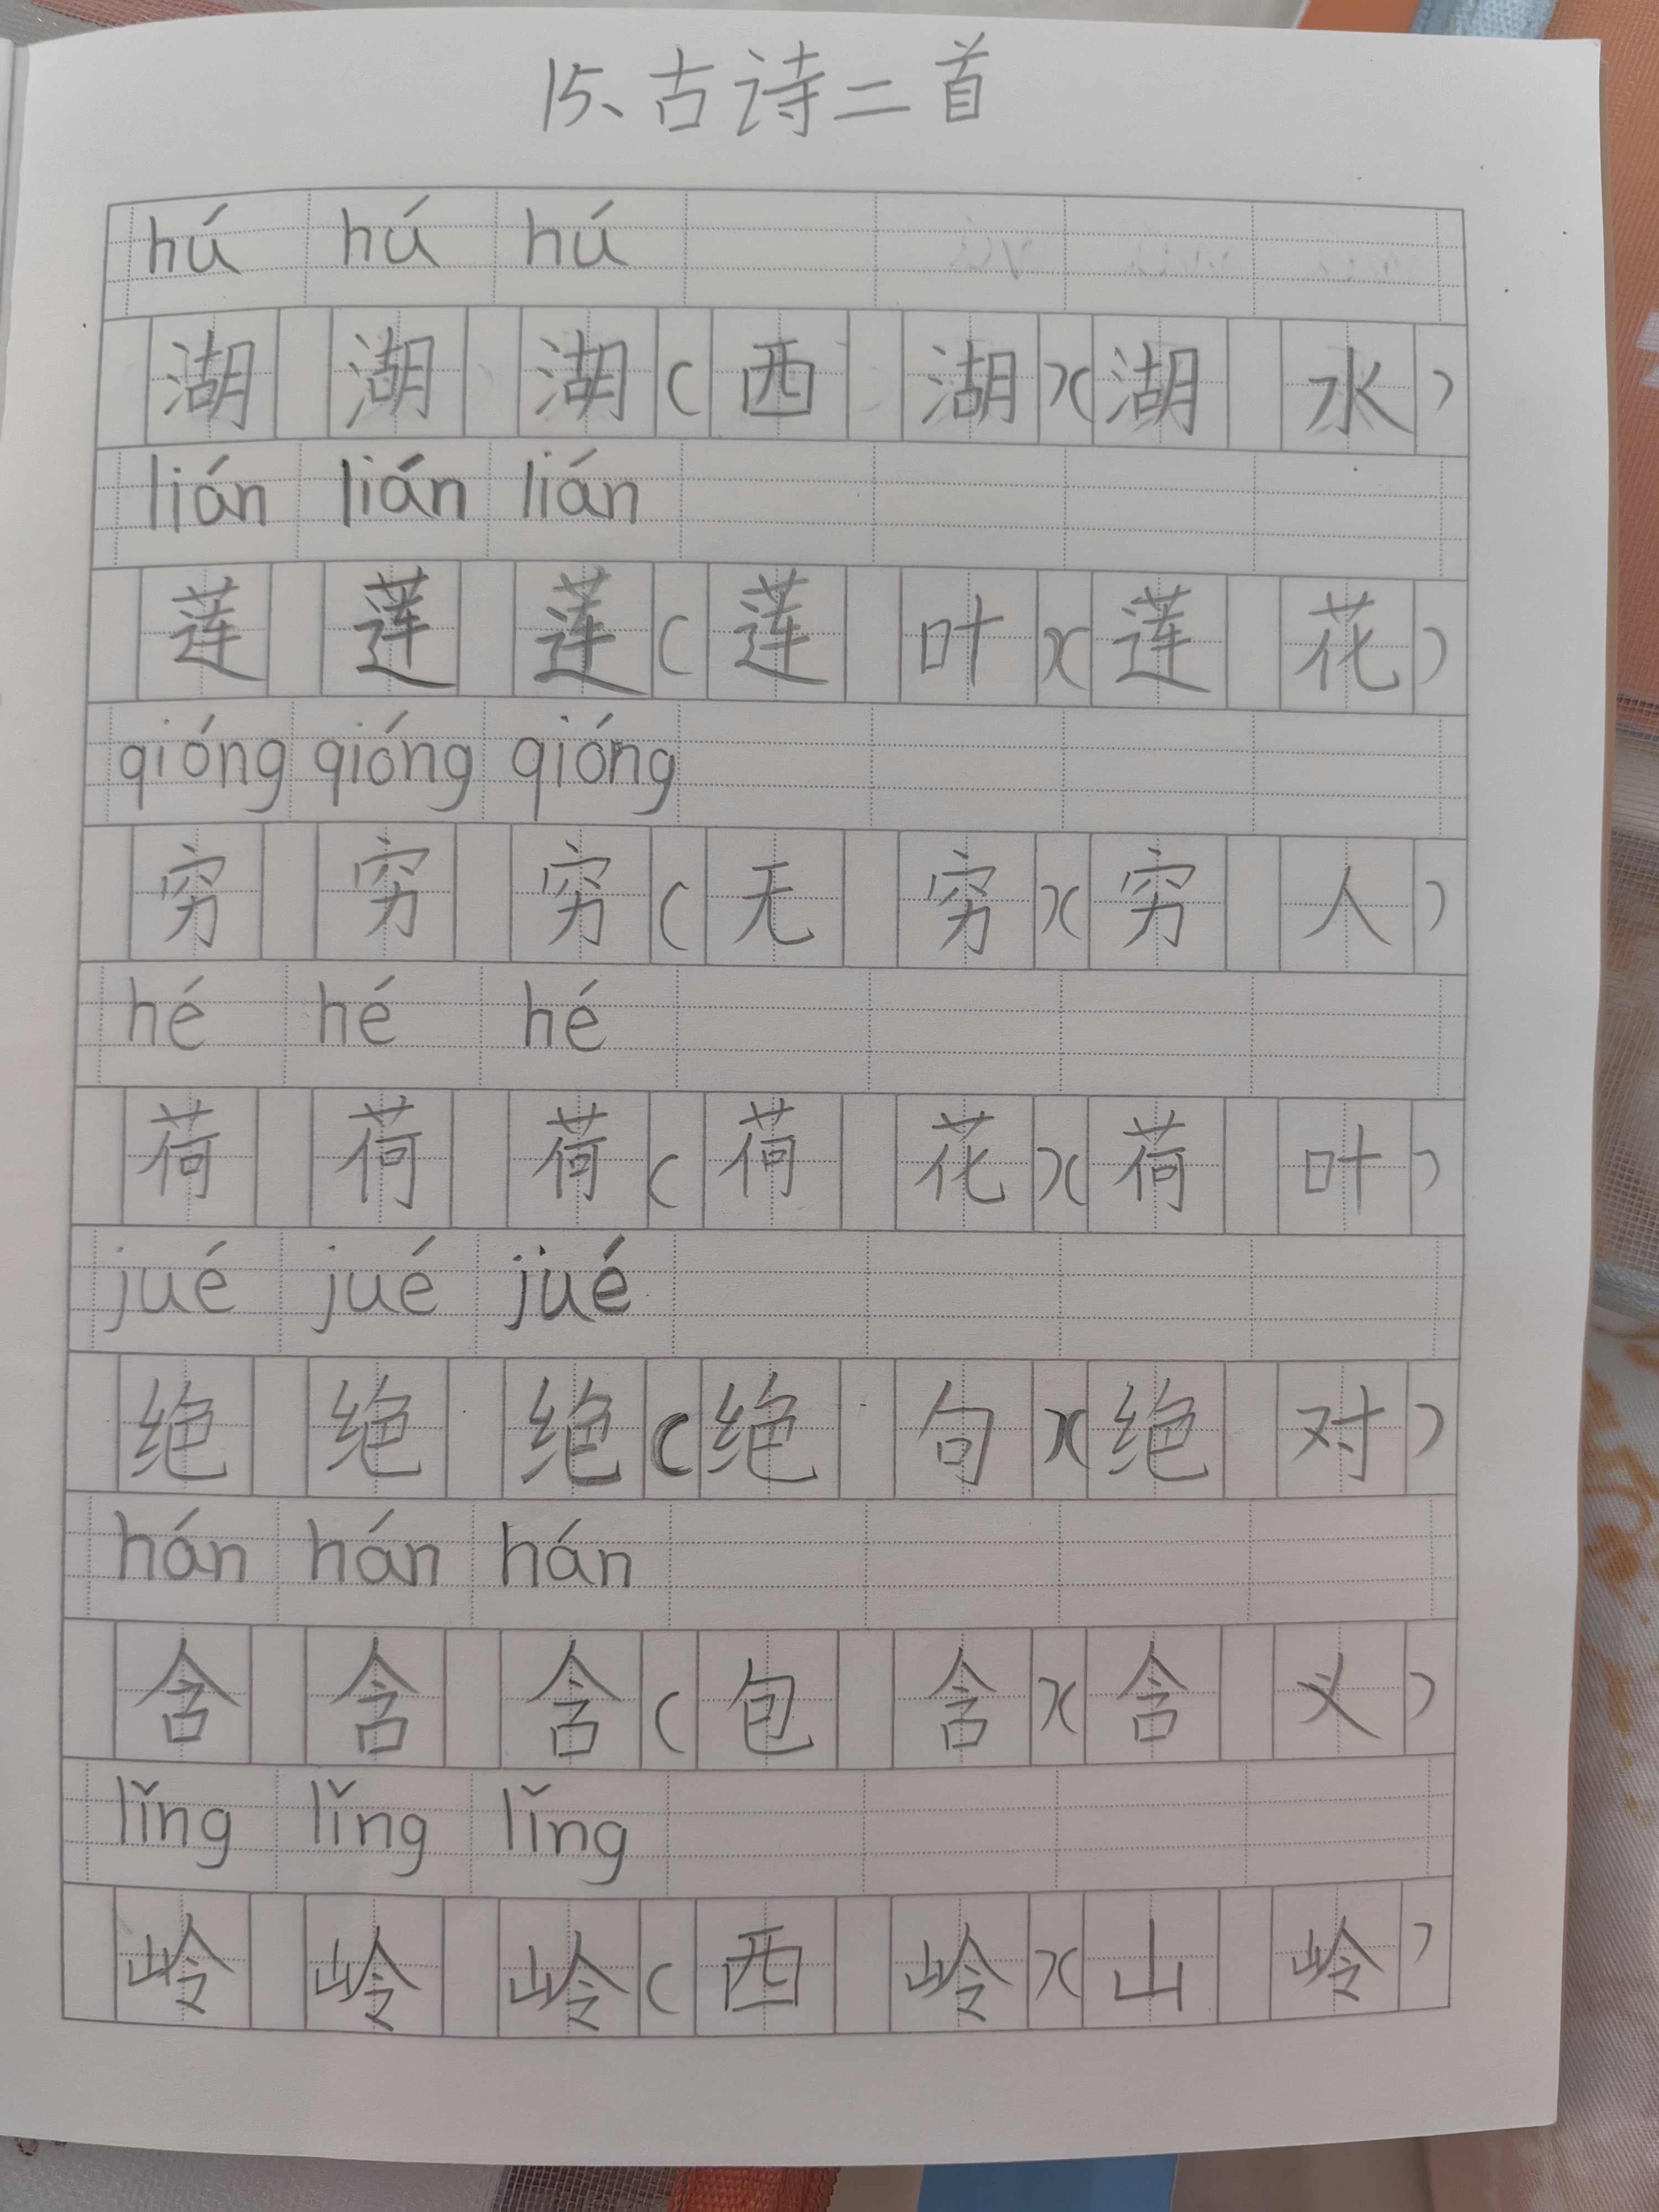 15、古诗二首
hú hú hú
湖 湖 湖(西 湖)(湖 水)
lián lián lián
莲 莲 莲(莲 叶)(莲 花)
qióng qióng qióng
穷 穷 穷(无 穷)(穷 人)
hé hé hé
荷 荷 荷(荷 花)(荷 叶)
jué jué jué
绝 绝 绝(绝 句)(绝 对)
hán hán hán
含 含 含(包 含)(含 义)
lǐng lǐng lǐng
岭 岭 岭(西 岭)(山 岭)